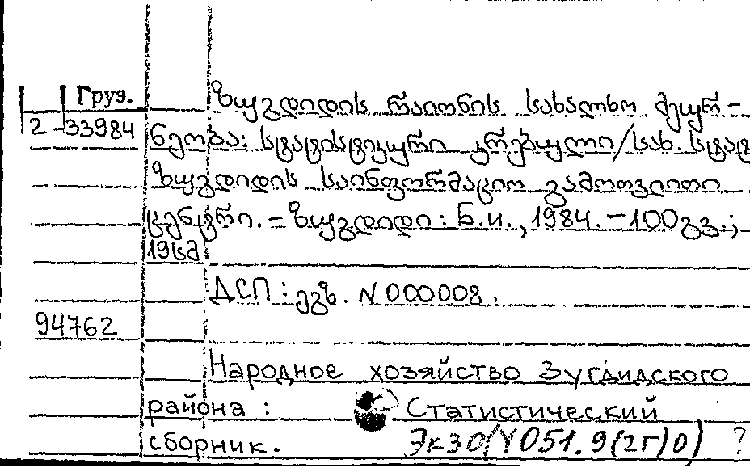 Груз.
ზუგდიდის რაიონის სახალხო მეურ-
2-33984
ნეობა: სტატისტიკური კრებული/სახ. სტატ
ზუგდიდის საინფორმაციო გამოთვლითი
ცენტრი. – ზუგდიდი: Б.и., 1984. – 100გვ.;
19სმ
ДСП: ეგზ. N000008.
94762
Народное хозяйство Зугдидского
района: Статистический
сборник. Экз0/У051.9(2Г)0) ?